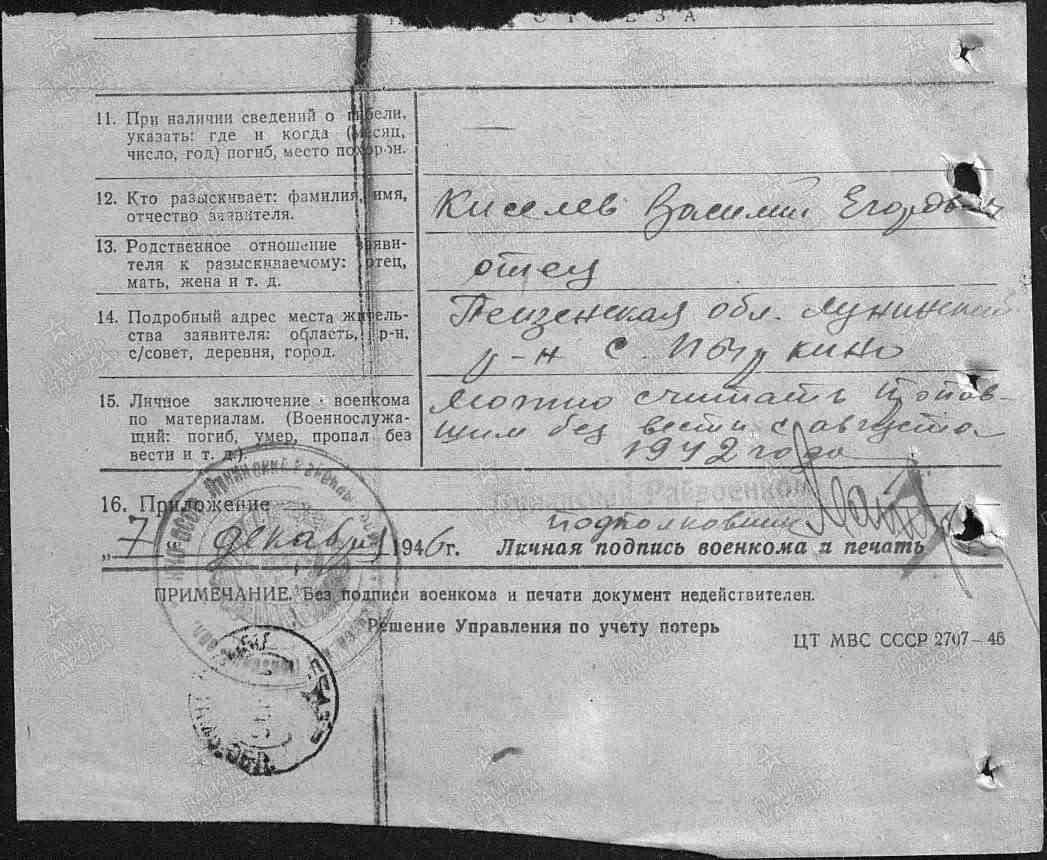 11. При наличии сведений о гибели,
указать: где и когда (месяц,
число, год) погиб, место похорон.
12. Кто разыскивает: фамилия, имя,
отчество заявителя.
Киселев Василий Егорович
13. Родственное отношение заяви-
теля к разыскиваемому: отец,
мать, жена и т. д.
отец
14. Подробный адрес места житель-
ства заявителя: область, р-н,
с/совет, деревня, город.
Пензенская обл. Лунинский
р-н с.
15. Личное заключение военкома
по материалам. (Военнослужа-
щий: погиб, умер, пропал без
вести и т. д.)
Можно считать пропав-
шим без вести с августа
1942 года
16. Приложение
Райвоенком
подполковник
„7 декабря 1946г. Личная подпись военкома и печать
ПРИМЕЧАНИЕ. Без подписи военкома и печати документ недействителен.
Решение Управления по учету потерь
ЦТ МВС СССР 2707—46